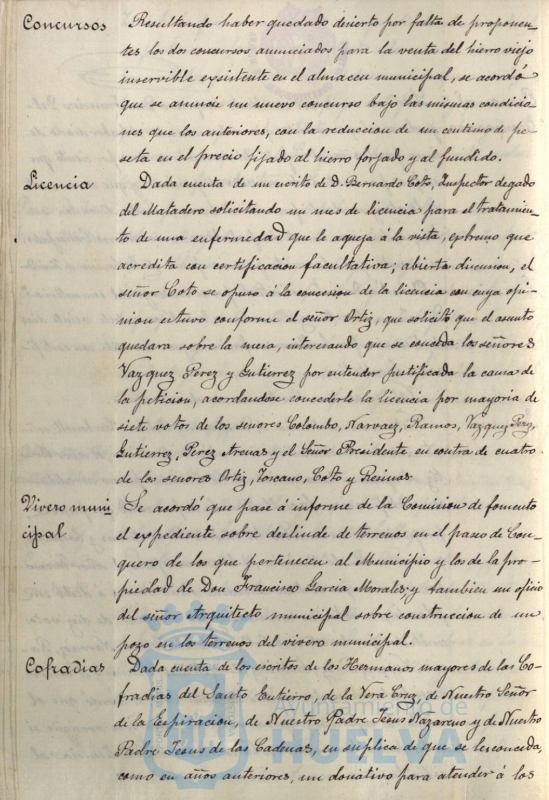 Concursos
Resultando haber quedado desierto por falta de proponen-
tes los dos concursos anunciados para la venta del hierro viejo
inservible existente en el almacen municipal, se acordó
que se anuncie un nuevo concurso bajo las mismas condicio-
nes que los anteriores, con la reduccion de un centimo de pe-
seta en el precio fijado al hierro forjado y al fundido.
Licencia
Dada cuenta de un escrito de D. Bernardo Coto, Inspector
del Matadero solicitando un mes de licencia para el tratamien-
to de una enfermedad que le aqueja á la vista, extremo que
acredita con certificacion facultativa; abierta discusion, el
señor Coto se opuso á la concesion de la licencia con cuya opi-
nion estuvo conforme el señor Ortiz, que solicitó que el asunto
quedara sobre la mesa, interesando que se conceda los señores
Vazquez Perez y Gutierrez por entender justificada la causa de
la peticion, acordandose concederle la licencia por mayoria de
siete votos de los señores Colombo, Narvaez, Ramos, Vazquez Perez,
Gutierrez, Perez Arenas y el Señor Presidente en contra de cuatro
de los señores Ortiz, Toscano, Coto y Resinas
Vivero muni-
cipal
Se acordó que pase á informe de la Comision de fomento
el expediente sobre deslinde de terrenos en el paseo de Con-
quero de los que pertenecen al Municipio y los de la pro-
piedad de Don Francisco Garcia Morales, y tambien un oficio
del señor Arquitecto municipal sobre construccion de un
pozo en los terrenos del vivero municipal.
Cofradias
Dada cuenta de los escritos de los Hermanos mayores de las Co-
fradias del Santo Entierro, de la Vera Cruz, de Nuestro Señor
de la Espiracion, de Nuestro Padre Jesus Nazareno y de Nuestro
Padre Jesus de las Cadenas, en suplica de que se les conceda,
como en años anteriores, un donativo para atender á los
Ayuntamiento de
HUELVA